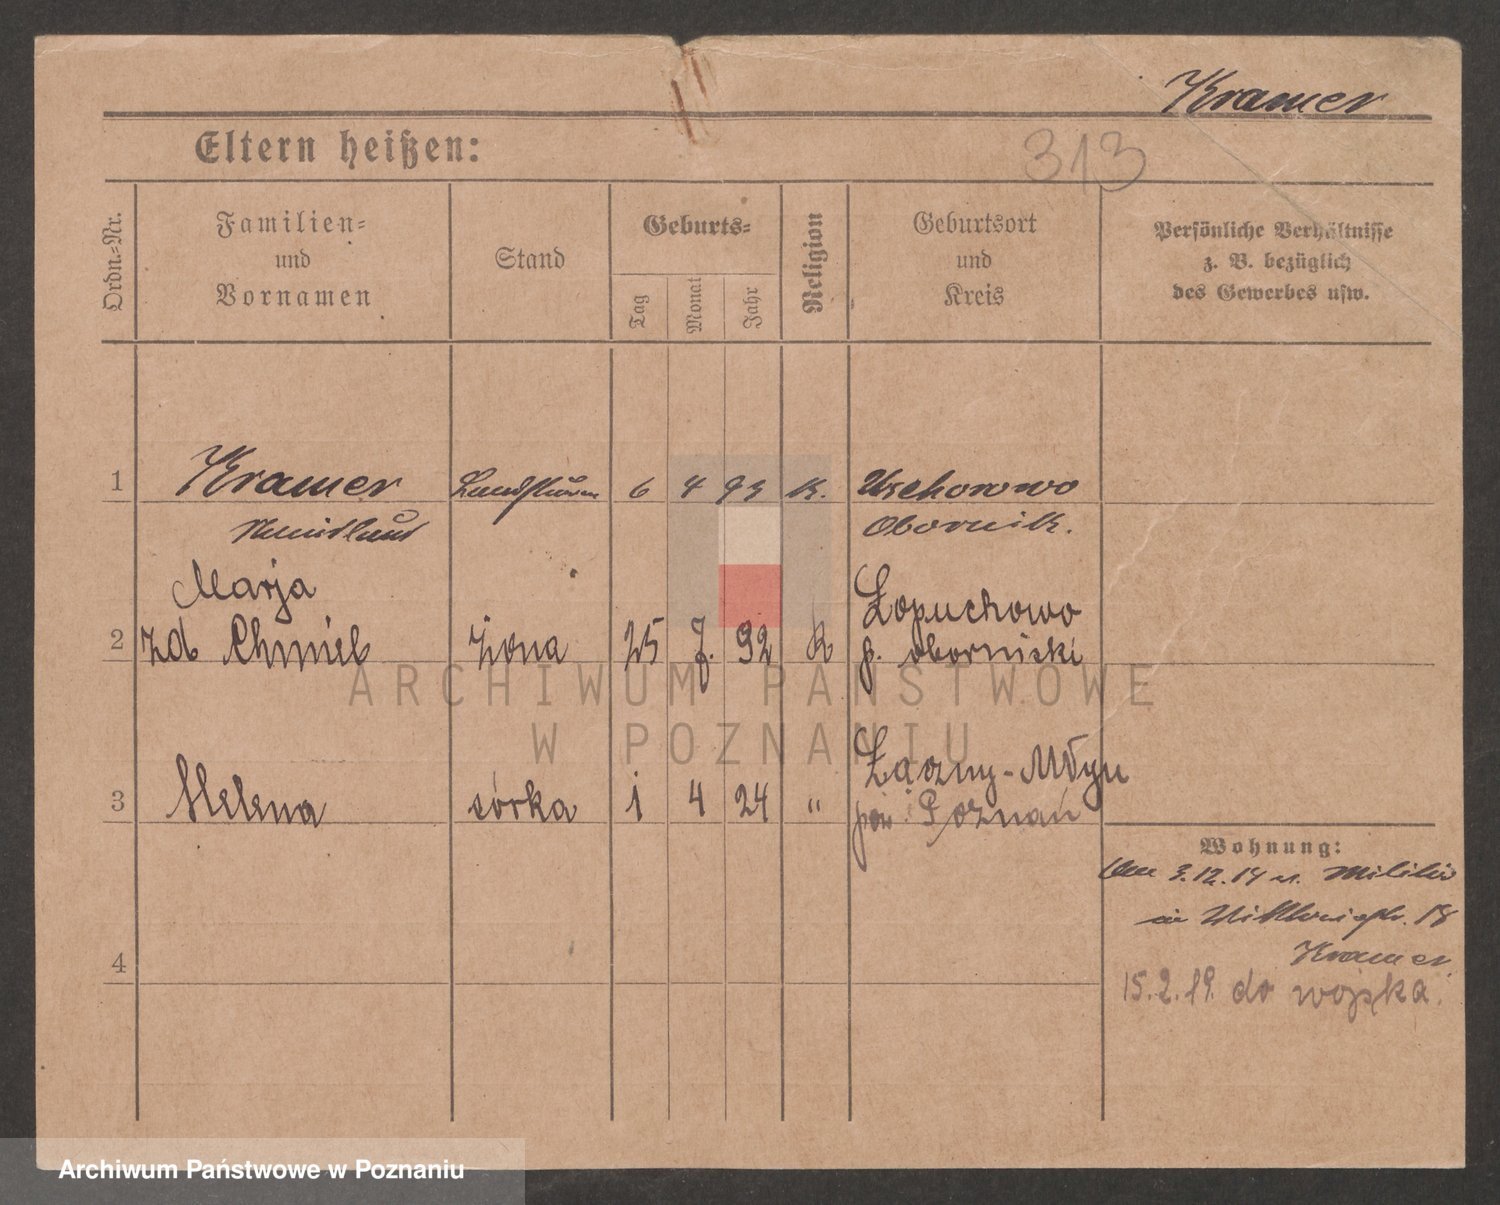 Kramer
Eltern heißen:
313
Ordn.-Nr.
Familien-
und
Vornamen
Stand
Geburts-
Tag
Monat
Jahr
Religion
Geburtsort
und
Kreis
Persönliche Verhältnisse
z. B. bezüglich
des Gewerbes usw.
1 Kramer Landsturm 6 4 93 K. Uschorowo
Obornik.
Marja Łopuchowo
2 zd Chmiel żona 25 7. 92 K p. obornicki
ARCHIWUM PAŃSTWOWE
W POZNANIU
Łączny-Młyn
3 Helena córka 1 4 24 " pow. Poznań
Wohnung:
3.12.14 Militär
18
Kramer
4
15.2.19. do wojska.
Archiwum Państwowe w Poznaniu